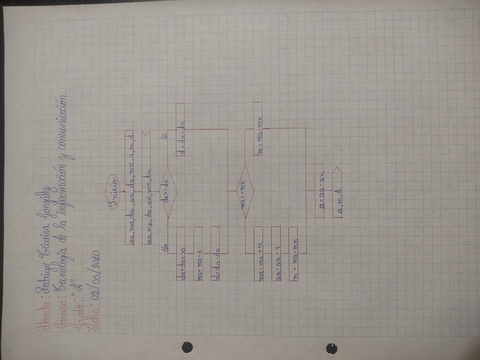 Nombre: Rodrigo Teixeira González
Carrera: Tecnología de la información y comunicación
Grado: "A"
Fecha: 02/05/2020
Inicio
aa, ma, da, an, dn, mn, a, m, d
aa, ma, da, an, mn, dn
No
da>=dn
Si
da=da+30
d=da-dn
ma=ma-1
d=da-dn
ma>=mn
ma=ma+12
m=ma-mn
aa=aa-1
m=ma-mn
a=aa-an
a, m, d